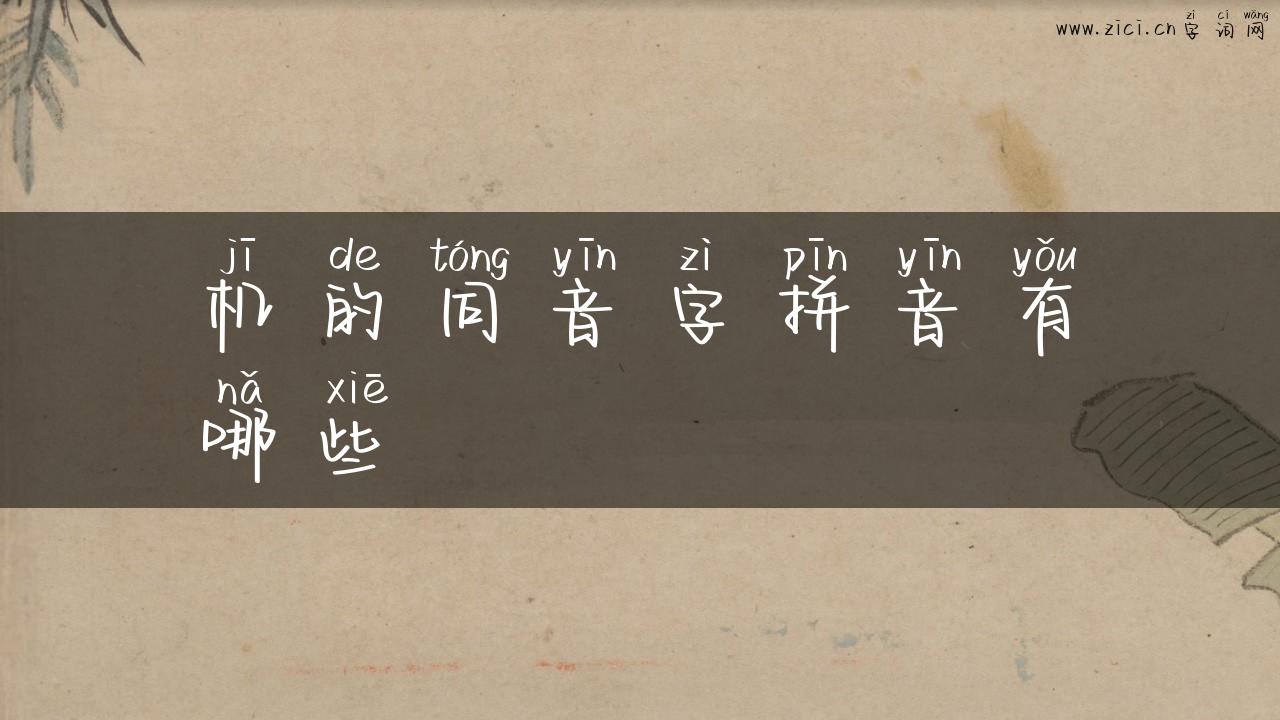 zì cí wǎng
www.zici.cn 字词网
jī de tóng yīn zì pīn yīn yǒu
机的同音字拼音有
nǎ xiē
哪些